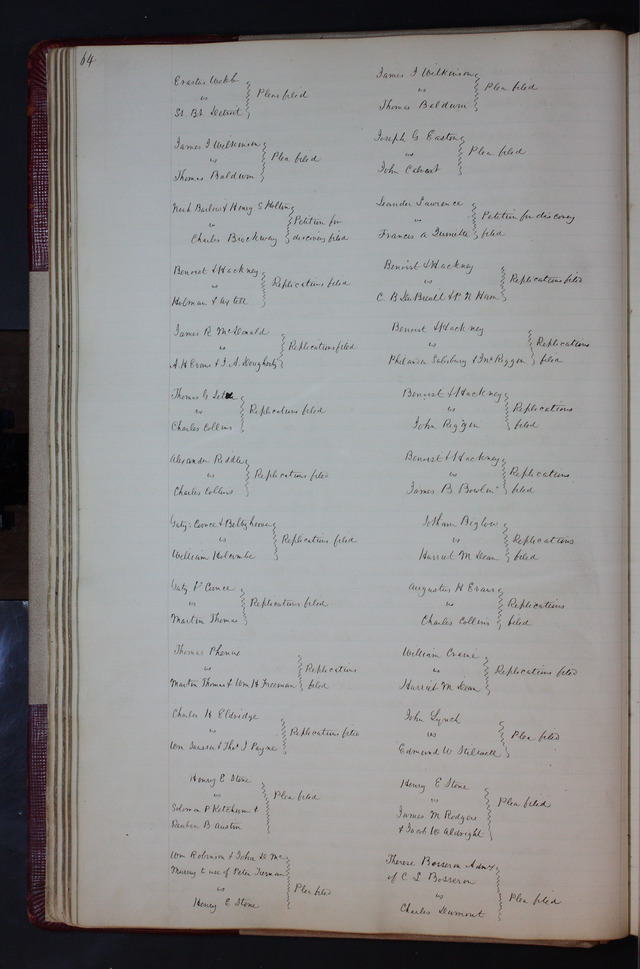 64
Erastus Webb
vs
St. Bt. Detroit
Pleas filed
James I Wilkinson
vs
Thomas Baldwin
Plea filed
Neth Barlow & Henry S
vs
Charles Brockway
Petition for
discovery filed
Benoist & Hackney
vs
Holman &
Replications filed
James R McDonald
vs
A. H Evans & I. A. Dougherty
Replications filed
Thomas G
vs
Charles Collins
Replications filed
Alexander Riddle
vs
Charles Collins
Replications filed
Gaty, Coonce & Beltzhoover
vs
William Holcombe
Replications filed
Gaty & Coonce
vs
Martin Thomas
Replications filed
Thomas Phenix
vs
Martin Thomas & Wm H Freeman
Replications
filed
Charles H Eldridge
vs
Wm & Thos. J Payne
Replications filed
Henry E Stone
vs
Solomon P Ketchum &
Reuben B Austin
Plea filed
Wm Robinson & John D Mc
Murray to use of Peter
vs
Henry E Stone
Plea filed
James I Wilkinson
vs
Thomas Baldwin
Plea filed
Joseph G Easton
vs
John Calvert
Plea filed
Leander Lawrence
vs
Francis A Quinette
Petition for discovery
filed
Benoist & Hackney
vs
C. B & N Ham
Replications filed
Benoist & Hackney
vs
Philander Salisbury & Jno Riggin
Replications
filed
Benoist & Hackney
vs
John Riggin
Replications
filed
Benoist & Hackney
vs
James B Bowlin
Replications
filed
Jotham Biglow
vs
Harriet M Dean
Replications
filed
Augustus H Evans
vs
Charles Collins
Replications
filed
William Crane
vs
Harriet M Dean
Replications filed
John Lynch
vs
Edmund W
Plea filed
Henry E Stone
vs
James M Rodgers
& Jacob W Aldright
Plea filed
Therese Bosseron Admx
of C L Bosseron
vs
Charles Dumont
Plea filed